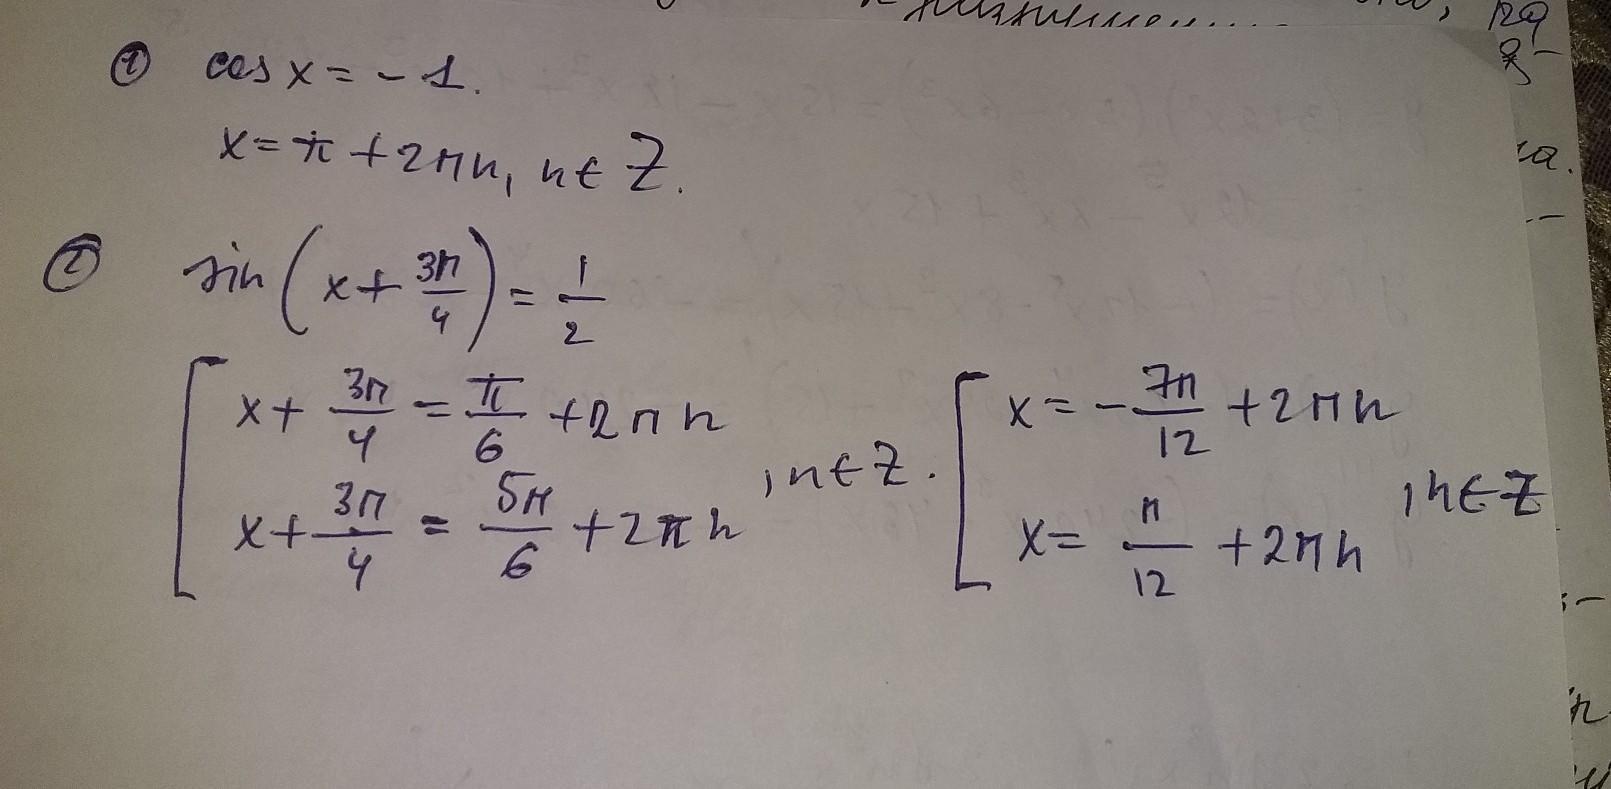 ① cos x = - 1.
x = π + 2πn, n ∈ Z.
② sin(x + 3π/4) = 1/2
[ x + 3π/4 = π/6 + 2πn
x + 3π/4 = 5π/6 + 2πn , n ∈ Z.
[ x = - 7π/12 + 2πn
x = π/12 + 2πn , n ∈ Z